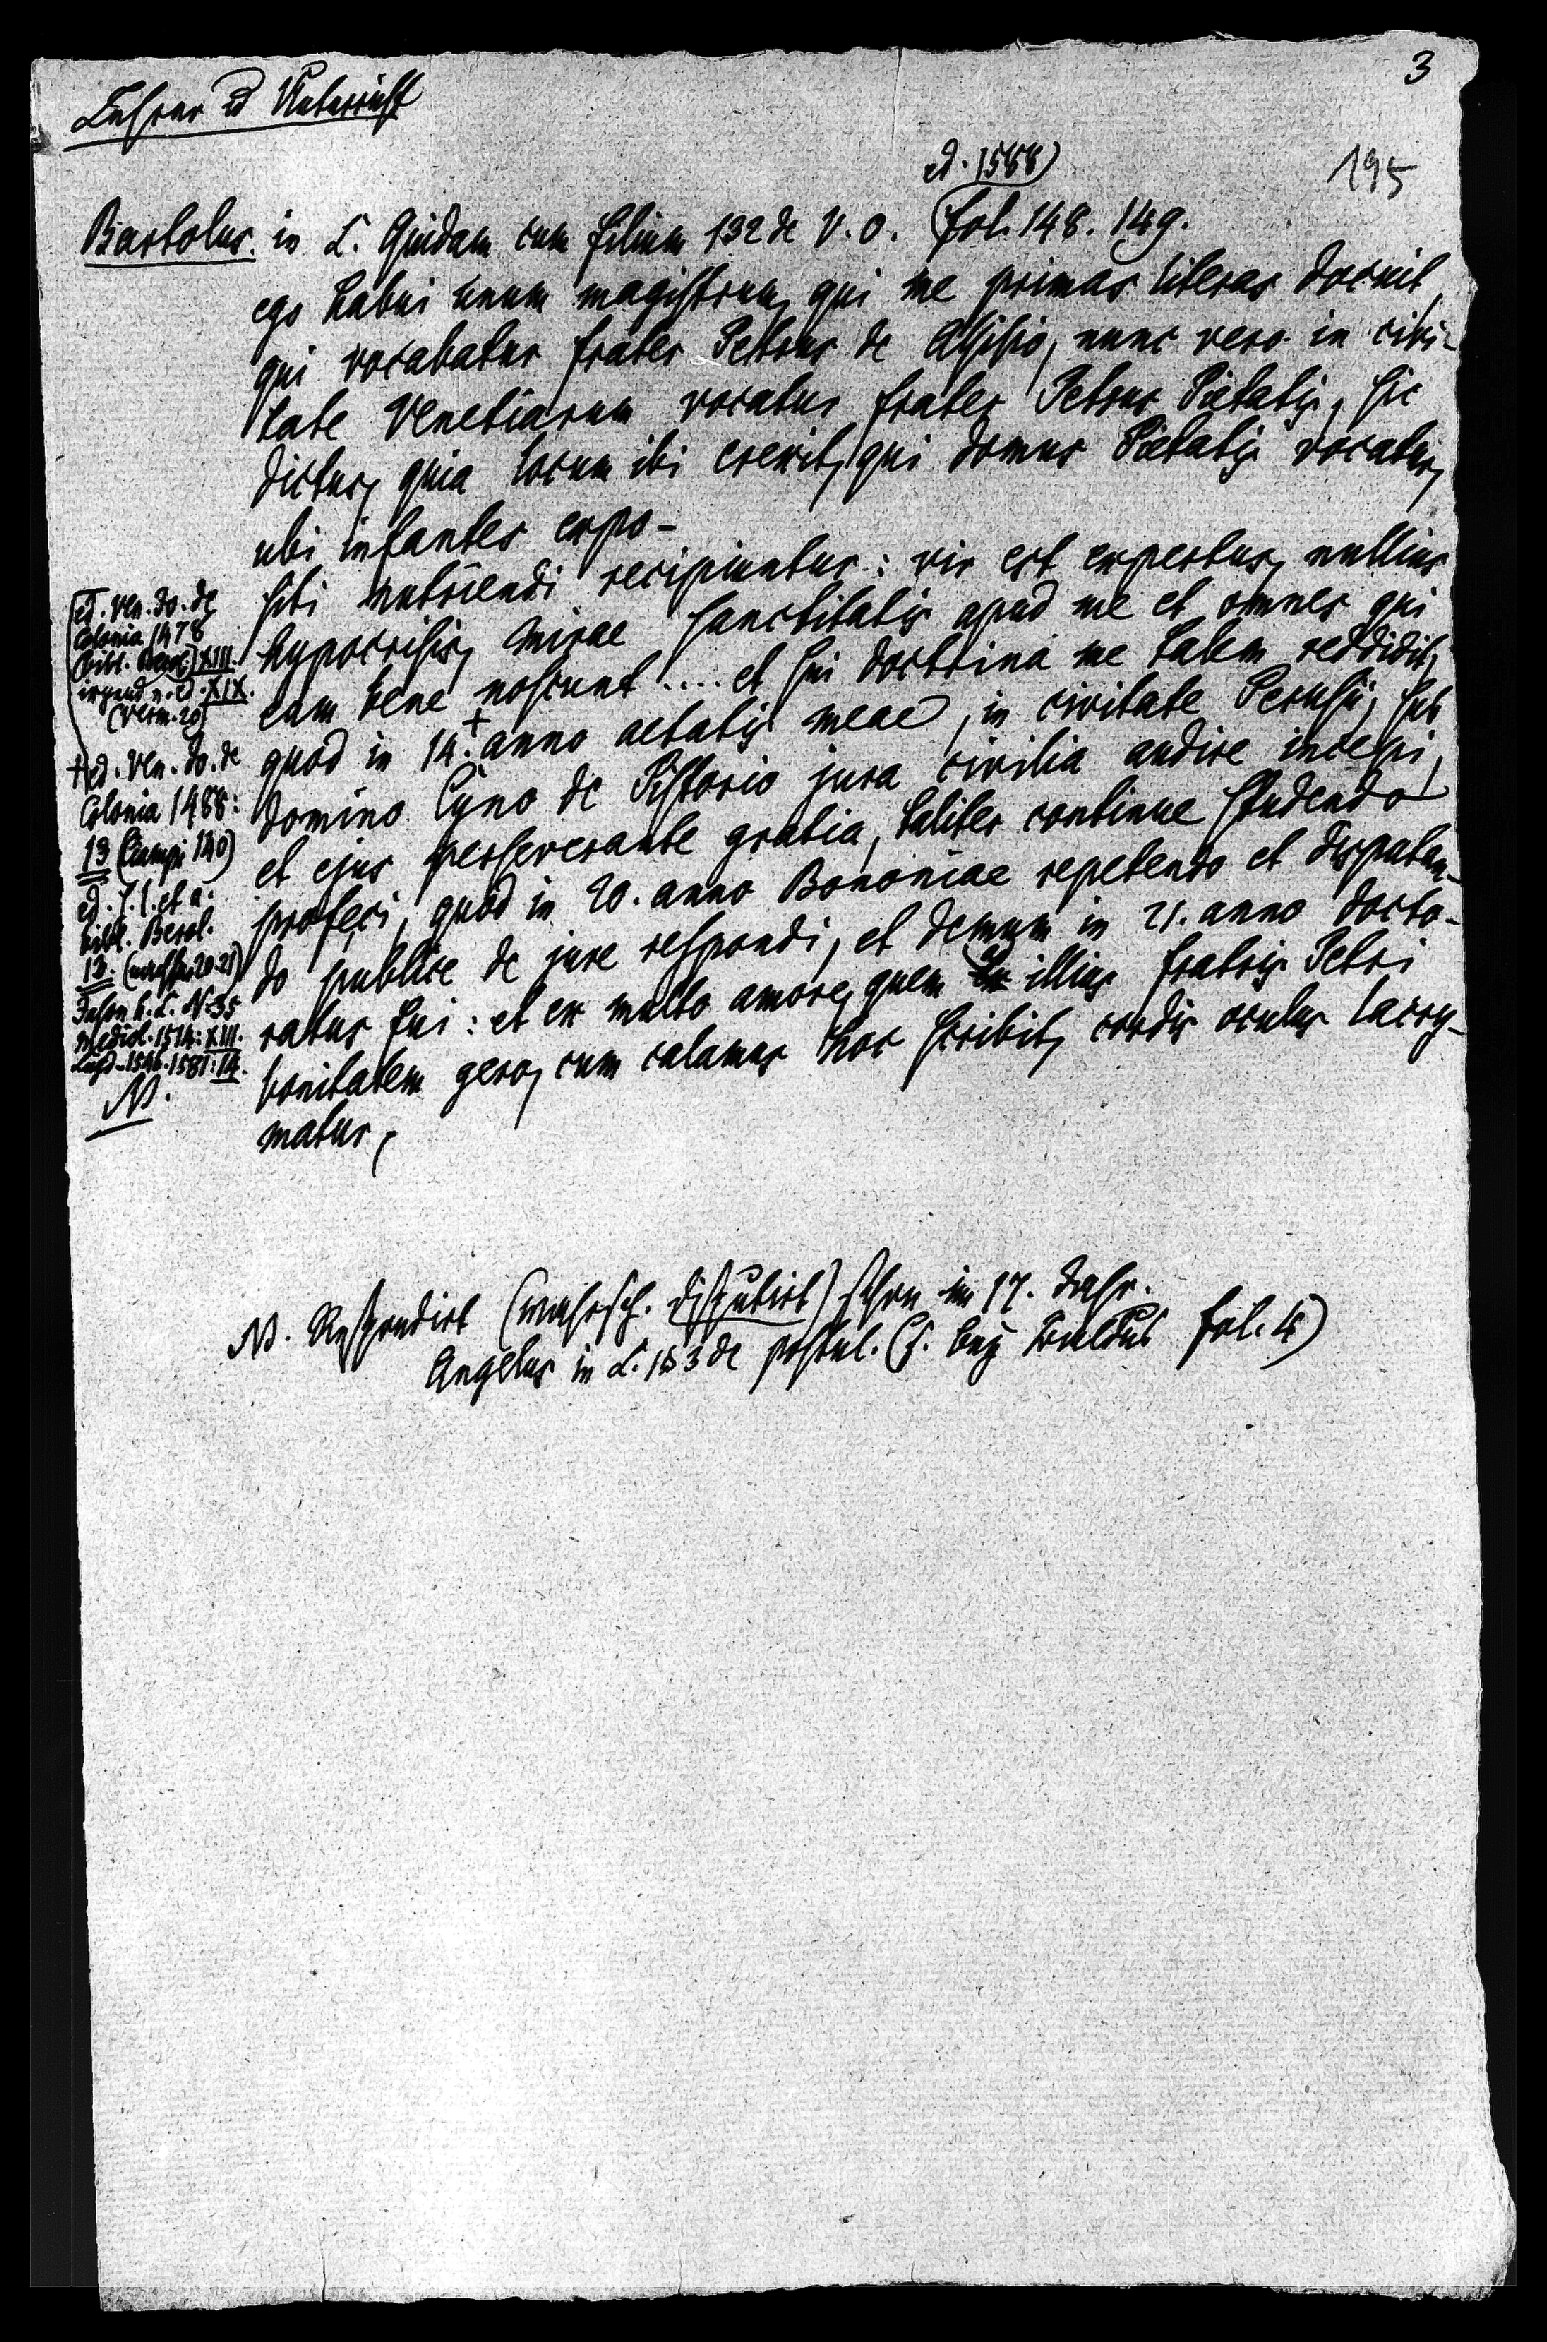 3
Lehrer u Unterricht
195
ed. 1588)
Bartolus. in L. Quidam cum filium 132 de V. O. (fol. 148. 149.
ego habui unum magistrum, qui me primas literas docuit,
qui vocabatur frater Petrus de Assisio, nunc vero in civi-
tate Venetiarum vocatus frater Petrus Pietatis, sic
dictus, quia locum ibi erexit, qui domus Pietatis vocatur,
ubi infantes expo-
siti nutriendi recipiuntur: vir est expertus, nullius
hypocrisis, mirae sanctitatis apud me et omnes qui
eum bene noscunt .... et sui doctrina me talem reddidit,
quod in 14.+ anno aetatis meae, in civitate Perusii, sub
domino Cyno de Pistorio jura civilia audire incepi,
et ejus perseverante gratia, taliter continue studendo
profeci, quod in 20. anno Bononiae repetendo et disputan-
do publice de jure respondi, et demum in 21. anno docto-
ratus fui: et ex multo amore, quem ad illius fratris Petri
bonitatem gero, cum calamus hoc scribit, cordis oculus lacry-
matur,
(ed. Ven. Jo. de
Colonia 1478
XIII.
ed. XIX.
+ ed. Ven. Jo. de
Colonia 1488:
13 (Ciampi 140)
ed. s. l. et a:
bibl. Berol.
13. 20. 21)
Jason h. L. N. 35
Mediol. 1514: XIII.
Lugd. 1546. 1581: 14.
N.
N. Respondirt (wahrsch. disputirt) schon im 17. Jahr.
Angelus in L. 1 § 3 de postul. (s. bey Baldus fol. 4)